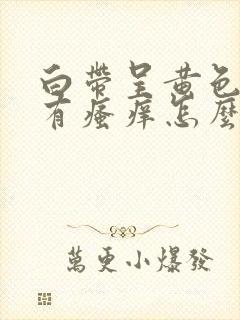 白帶呈黃色
有瘙痒怎麽
萬更小爆發